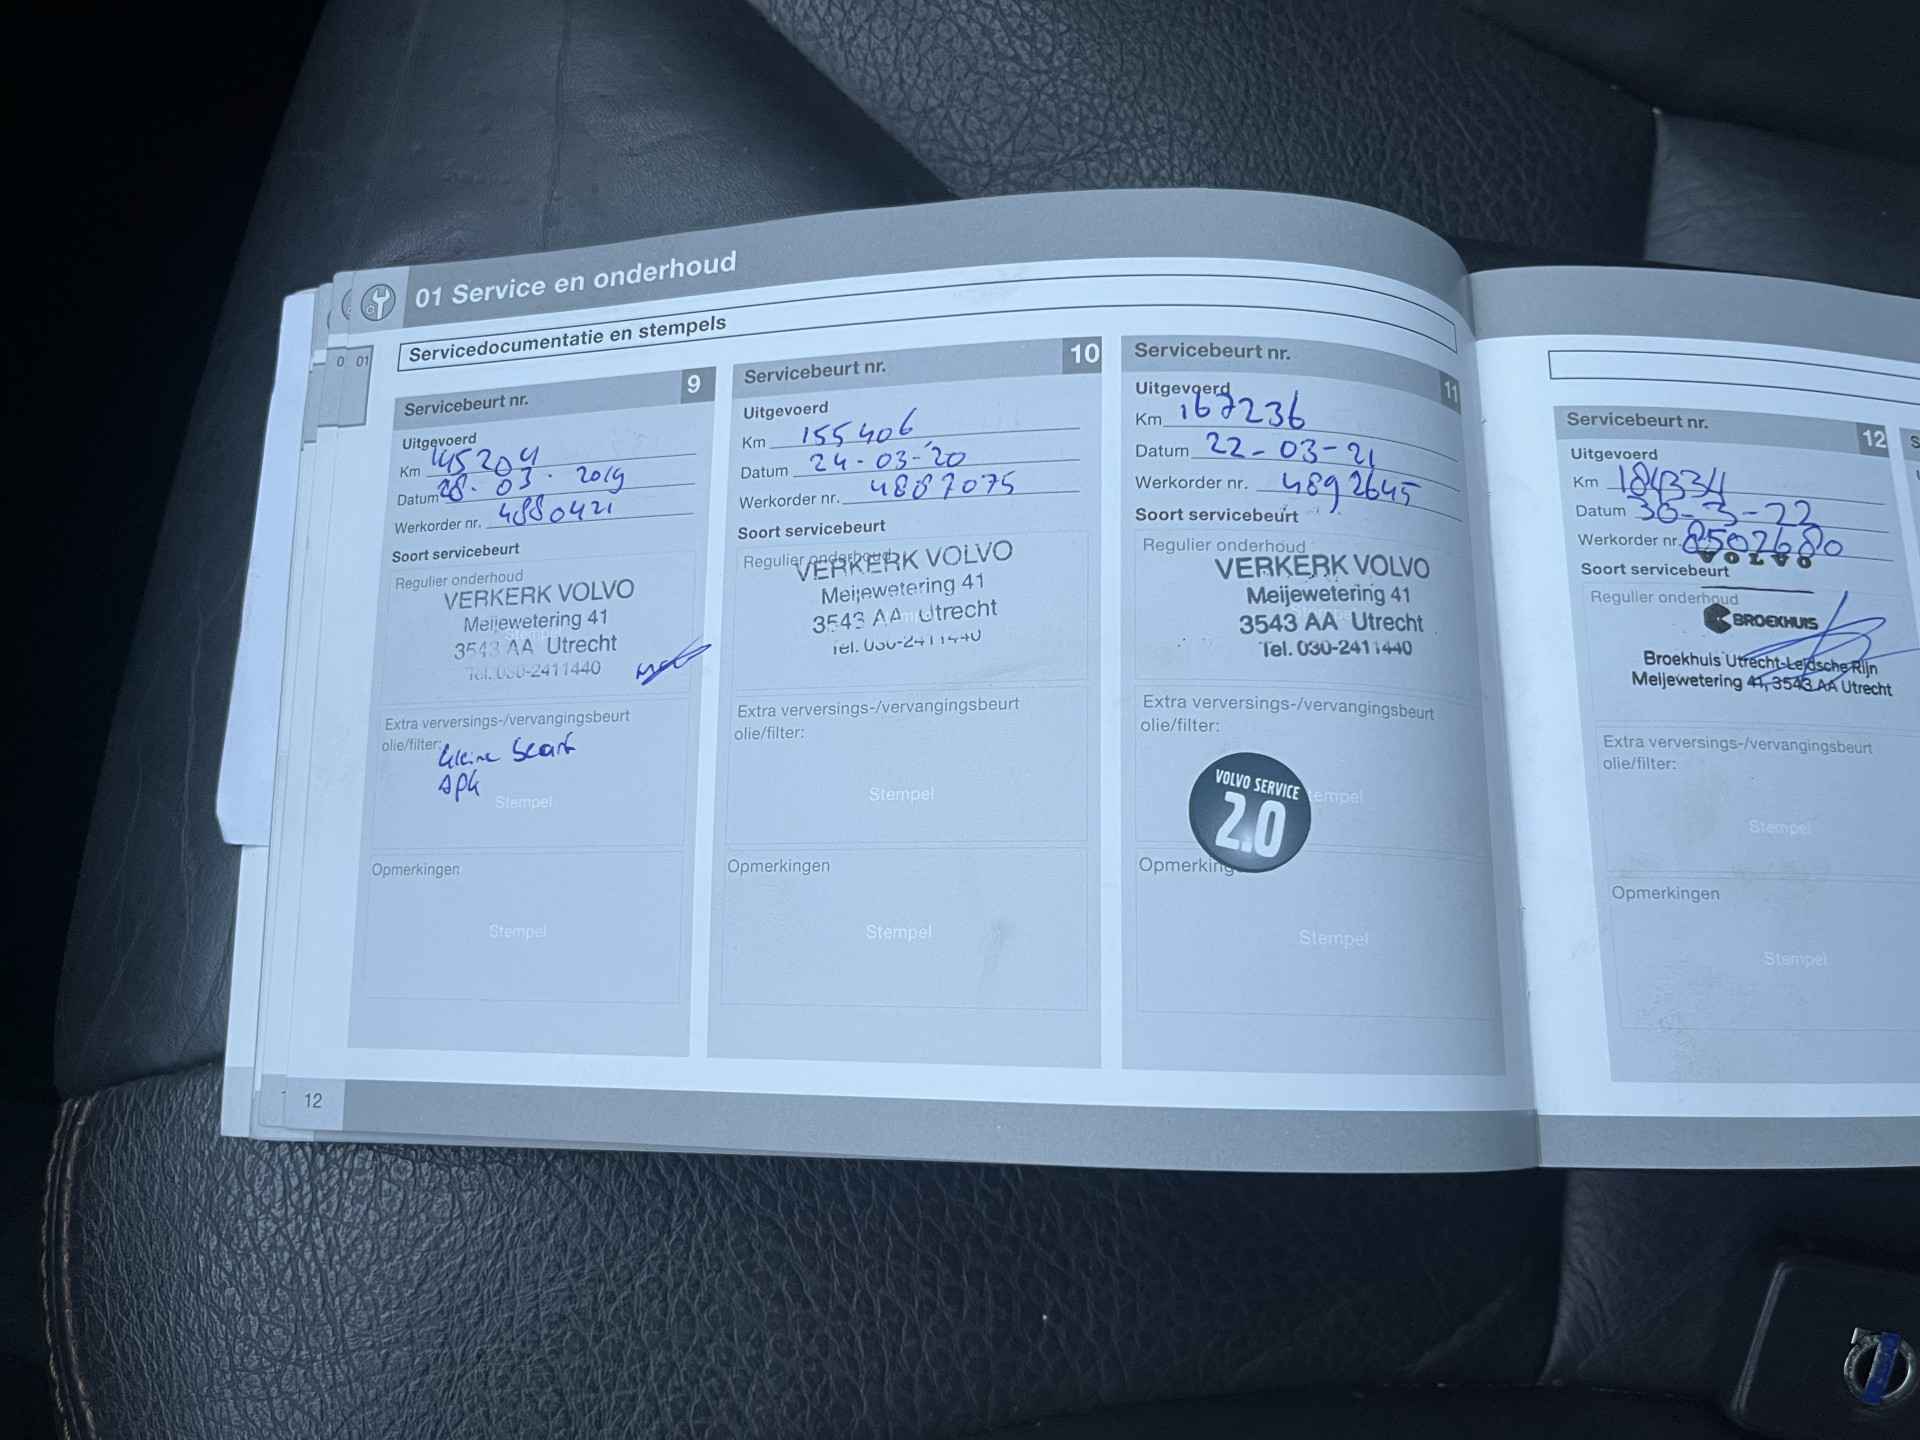 0 01
01 Service en onderhoud
Servicedocumentatie en stempels
Servicebeurt nr. 9
Uitgevoerd
Km 145204
Datum 28-03-2019
Werkorder nr. 4880421
Soort servicebeurt
Regulier onderhoud
VERKERK VOLVO
Meijewetering 41
3543 AA Utrecht
Tel. 030-2411440
Extra verversings-/vervangingsbeurt
olie/filter:
kleine beurt
APK
Stempel
Opmerkingen
Stempel
Servicebeurt nr. 10
Uitgevoerd
Km 155406
Datum 24-03-'20
Werkorder nr. 4887075
Soort servicebeurt
Regulier onderhoud
VERKERK VOLVO
Meijewetering 41
3543 AA Utrecht
Tel. 030-2411440
Extra verversings-/vervangingsbeurt
olie/filter:
Stempel
Opmerkingen
Stempel
Servicebeurt nr. 11
Uitgevoerd
Km 167236
Datum 22-03-21
Werkorder nr. 4892645
Soort servicebeurt
Regulier onderhoud
VERKERK VOLVO
Meijewetering 41
3543 AA Utrecht
Tel. 030-2411440
Extra verversings-/vervangingsbeurt
olie/filter:
VOLVO SERVICE
2.0
Stempel
Opmerking
Stempel
12
Servicebeurt nr. 12
Uitgevoerd
Km 184334
Datum 30-3-22
Werkorder nr. 8502680
VOLVO
Soort servicebeurt
Regulier onderhoud
BROEKHUIS
Broekhuis Utrecht-Leidsche Rijn
Meijewetering 41, 3543 AA Utrecht
Extra verversings-/vervangingsbeurt
olie/filter:
Stempel
Opmerkingen
Stempel